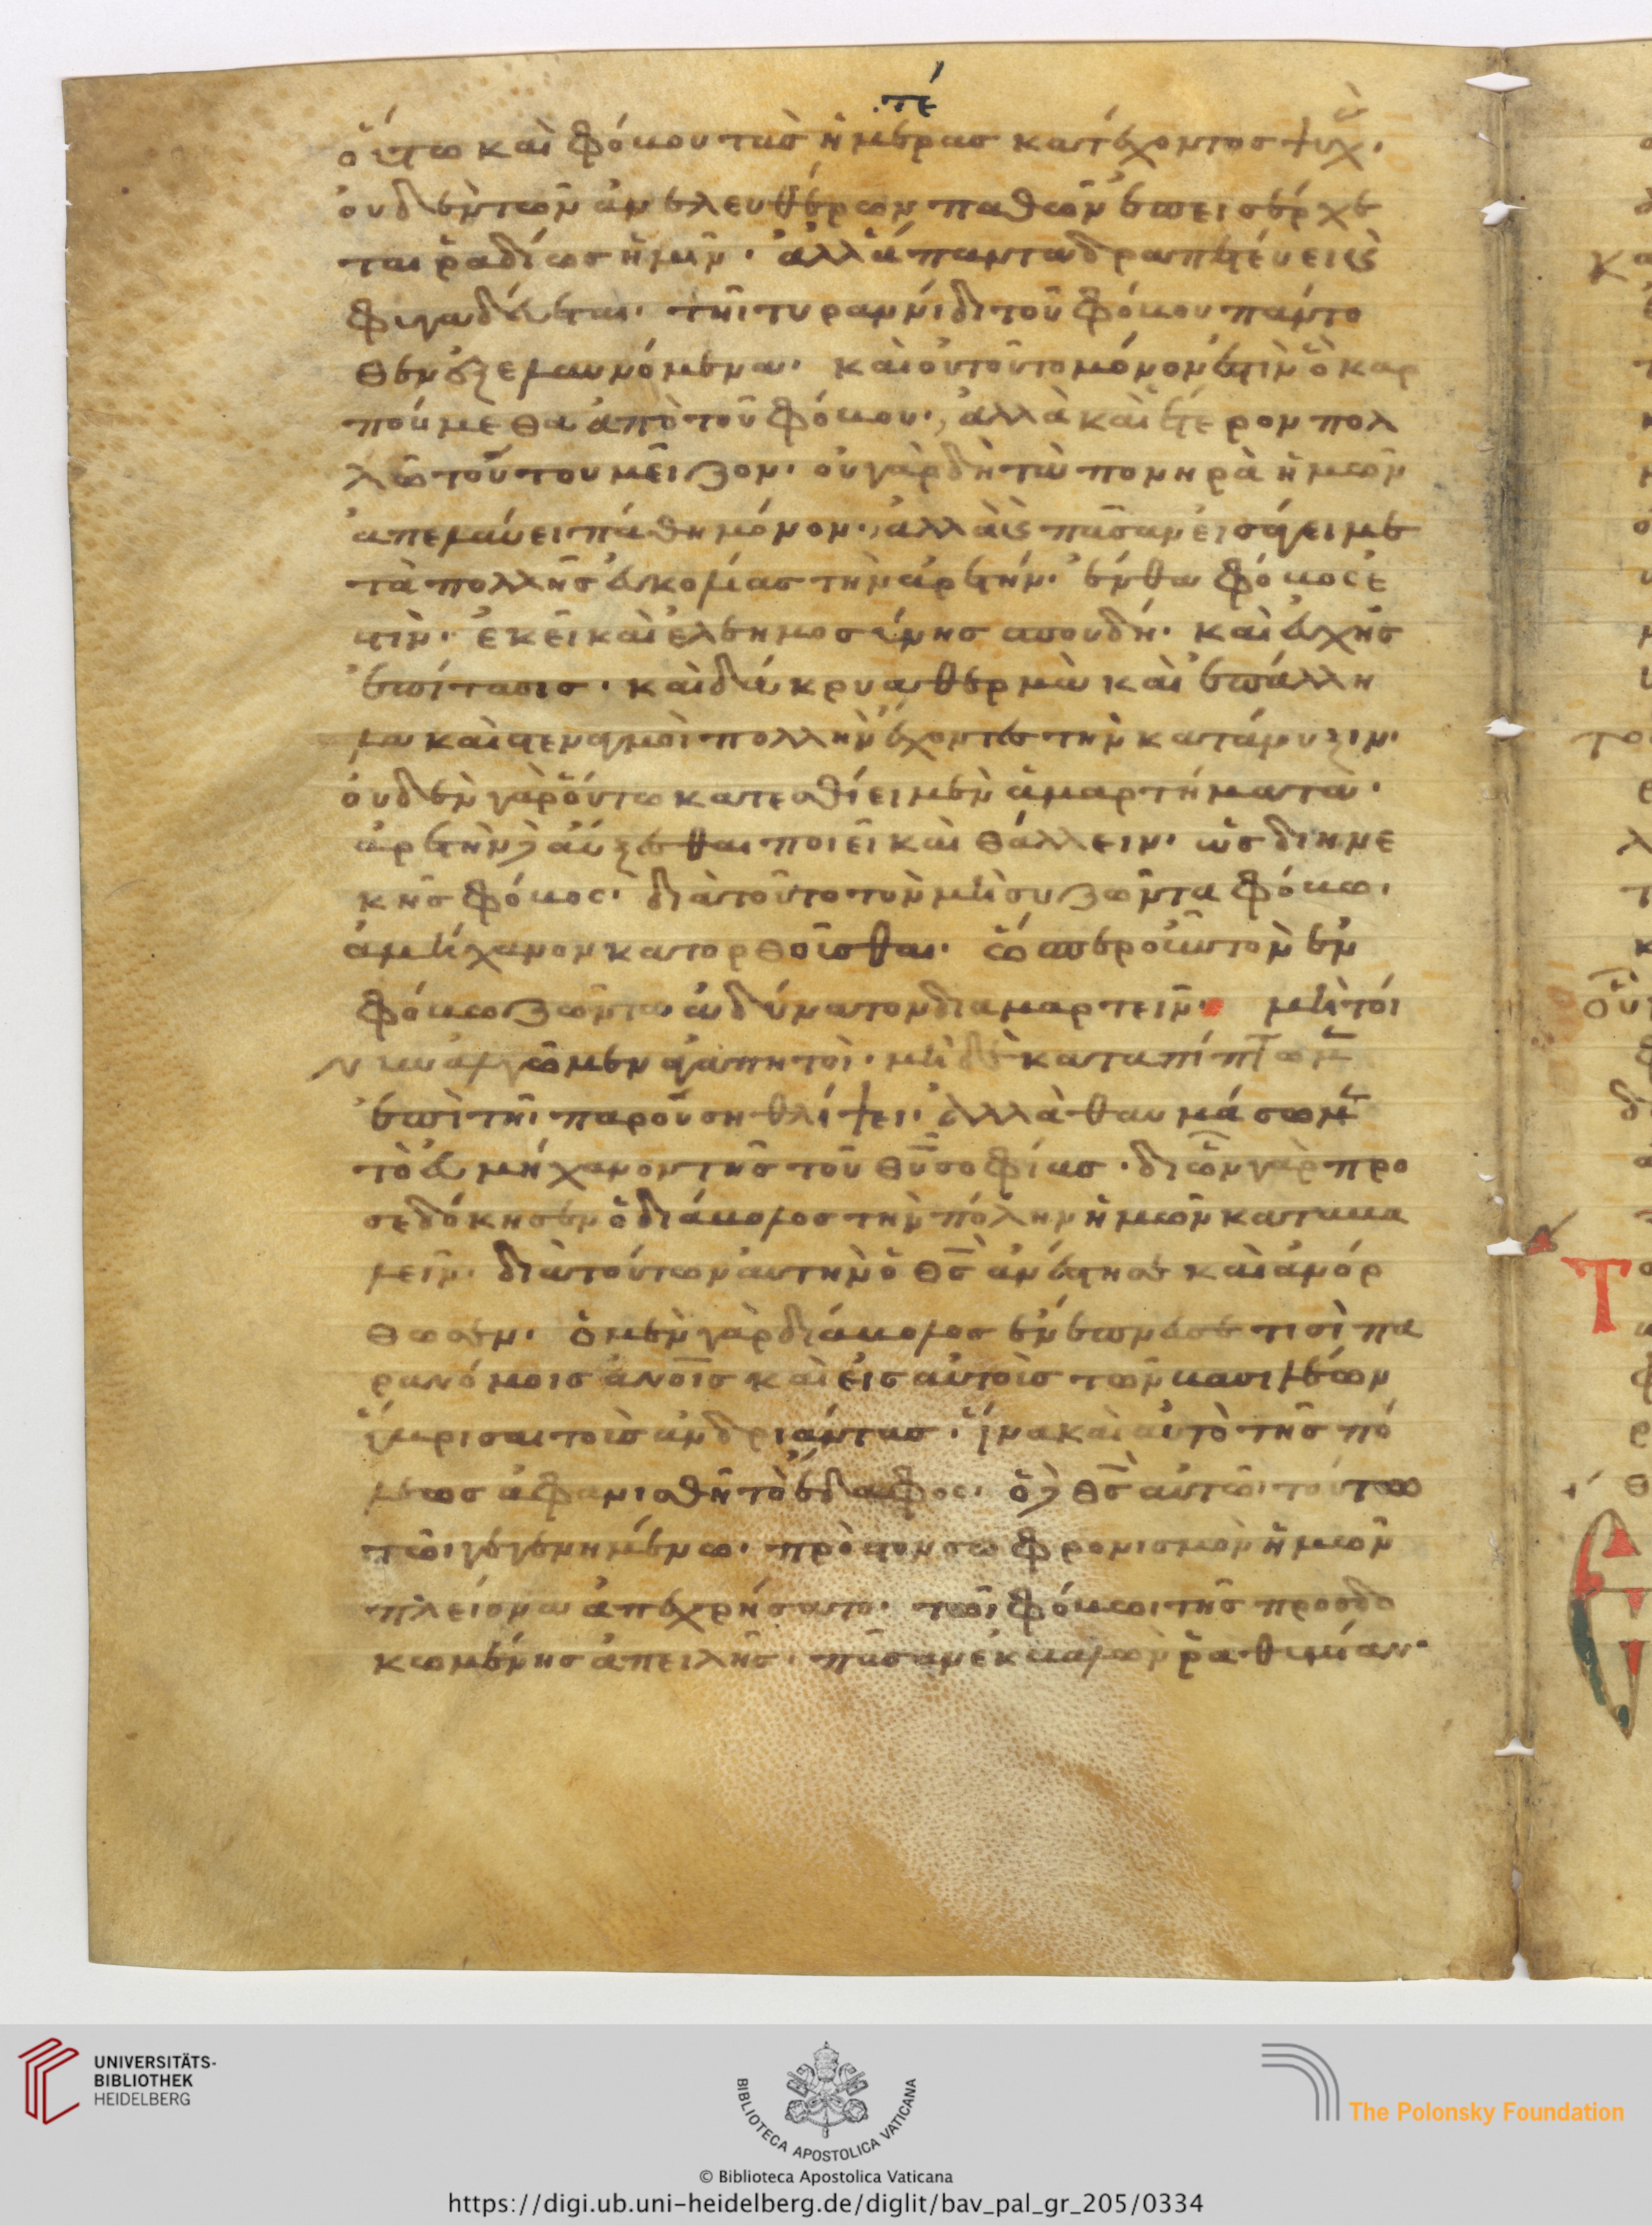 πέ
οὕτω καὶ φόβου τὰς ἡμέρας κατέχοντος ψυχ(ὰς).
οὐδὲν τῶν ἀνελευθέρων παθῶν ἐπεισέρχε
ται ῥαδίως ἡμῖν· ἀλλὰ πάντα δραπετεύει καὶ
φυγαδεύεται· τῆι τυραννίδι τοῦ φόβου πάντο
θεν ἐξελαυνόμενα· καὶ οὐ τοῦτο μόνον ἐστὶν ὃ καρ
πούμεθα ἀπὸ τοῦ φόβου, ἀλλὰ καὶ ἕτερον πολ
λῶ τούτου μεῖζον· οὐ γὰρ δὴ τὰ πονηρὰ ἡμῶν
ἀπελαύνει πάθη μόνον, ἀλλὰ καὶ πᾶσαν εἰσάγει με
τὰ πολλῆς εὐκολίας τὴν ἀρετήν· ἔνθα φόβος ἐ
στὶν· ἐκεῖ καὶ ἐλεημοσύνης σπουδὴ· καὶ εὐχῆς
ἐπίτασις· καὶ δάκρυα θερμὰ καὶ ἐπάλλη
λα καὶ στεναγμοὶ πολλὴν ἔχοντες τὴν κατάνυξιν·
οὐδὲν γὰρ οὕτω κατεσθίει μὲν ἁμαρτήματα·
ἀρετὴν δὲ αὔξεσθαι ποιεῖ καὶ θάλλειν· ὡς διηνε
κὴς φόβος· διὰ τοῦτο τὸν μὴ συζῶντα φόβω·
ἀμήχανον κατορθοῦσθαι· ὥσπερ οὖν τὸν ἐν
φόβω ζῶντα ἀδύνατον διαμαρτεῖν· μὴ τοί
νυν ἀλγῶμεν ἀγαπητοὶ· μὴ δὲ καταπίπτωμ(εν)
ἐπὶ τῆι παρούση θλίψει· ἀλλὰ θαυμάσωμ(εν)
τὸ εὐμήχανον τῆς τοῦ θυ σοφίας· δι ὧν γὰρ προ
σεδόκησεν ὁ διάβολος τὴν πόλιν ἡμῶν καταβα
λεῖν· διὰ τούτων αὐτὴν ὁ θς ἀνέστησε καὶ ἀνόρ
θωσεν· ὁ μὲν γὰρ διάβολος ἐνέπνευσε τισὶ πα
ρανόμοις ἀνοις καὶ εἰς αὐτοὺς τῶν βασιλέων
ὑβρίσαι τοὺς ἀνδριάντας· ἵνα καὶ αὐτὸ τῆς πό
λεως ἀφανισθῆ τὸ ἔδαφος· ὁ δὲ θς αὐτῶ τούτω
τῶι γεγενημένω· πρὸς τὸν σωφρονισμὸν ἡμῶν
πλείονα ἀπεχρήσατο· τῶι φόβωι τῆς προσδο
κωμένης ἀπειλῆς· πᾶσαν ἐκβαλὼν ῥαθυμίαν·
UNIVERSITÄTS-
BIBLIOTHEK
HEIDELBERG
BIBLIOTECA APOSTOLICA VATICANA
The Polonsky Foundation
© Biblioteca Apostolica Vaticana
https://digi.ub.uni-heidelberg.de/diglit/bav_pal_gr_205/0334